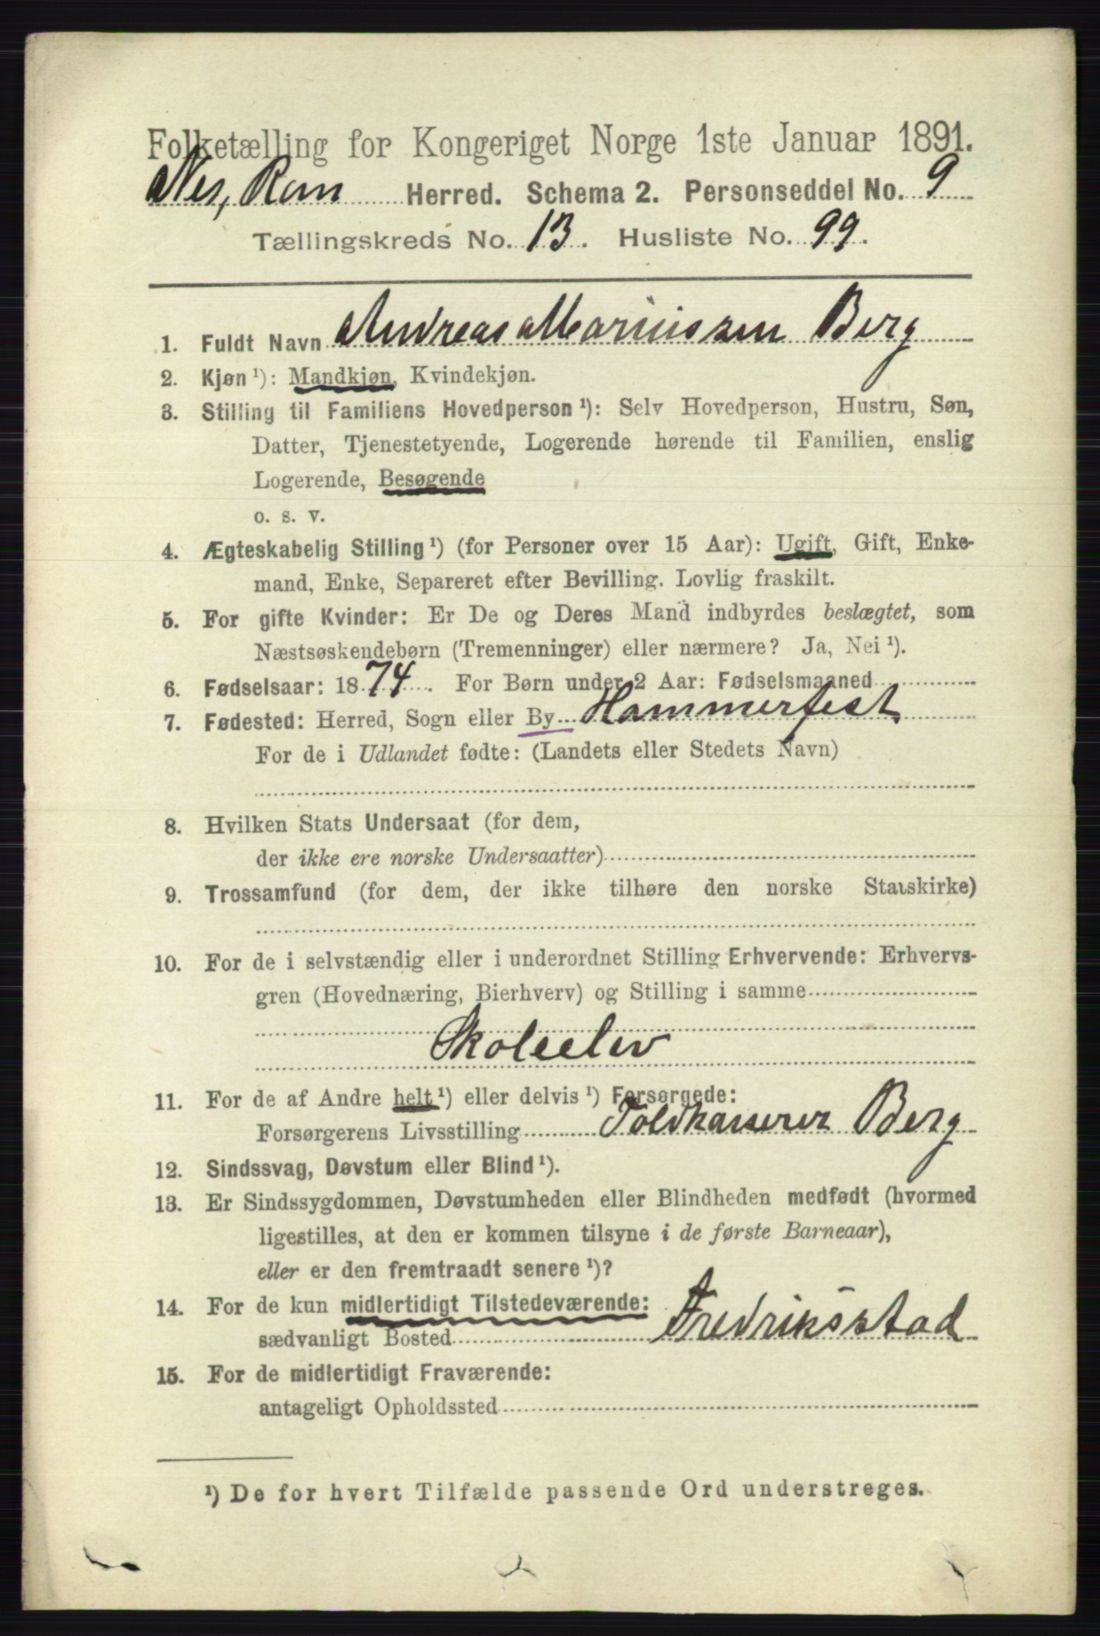 Folketælling for Kongeriget Norge 1ste Januar 1891.
Nes, Rom Herred. Schema 2. Personseddel No. 9
Tællingskreds No. 13. Husliste No. 99.
1. Fuldt Navn Andreas Mariussen Berg
2. Kjøn ¹): Mandkjøn, Kvindekjøn.
3. Stilling til Familiens Hovedperson ¹): Selv Hovedperson, Hustru, Søn,
Datter, Tjenestetyende, Logerende hørende til Familien, enslig
Logerende, Besøgende
o. s. v.
4. Ægteskabelig Stilling ¹) (for Personer over 15 Aar): Ugift, Gift, Enke-
mand, Enke, Separeret efter Bevilling. Lovlig fraskilt.
5. For gifte Kvinder: Er De og Deres Mand indbyrdes beslægtet, som
Næstsøskendebørn (Tremenninger) eller nærmere? Ja, Nei ¹).
6. Fødselsaar: 1874. For Børn under 2 Aar: Fødselsmaaned
7. Fødested: Herred, Sogn eller By Hammerfest
For de i Udlandet fødte: (Landets eller Stedets Navn)
8. Hvilken Stats Undersaat (for dem,
der ikke ere norske Undersaatter)
9. Trossamfund (for dem, der ikke tilhøre den norske Statskirke)
10. For de i selvstændig eller i underordnet Stilling Erhvervende: Erhvervs-
gren (Hovednæring, Bierhverv) og Stilling i samme
Skoleelev
11. For de af Andre helt ¹) eller delvis ¹) Forsørgede:
Forsørgerens Livsstilling Toldkasserer Berg
12. Sindssvag, Døvstum eller Blind ¹).
13. Er Sindssygdommen, Døvstumheden eller Blindheden medfødt (hvormed
ligestilles, at den er kommen tilsyne i de første Barneaar),
eller er den fremtraadt senere ¹)?
14. For de kun midlertidigt Tilstedeværende:
sædvanligt Bosted Fredriksstad
15. For de midlertidigt Fraværende:
antageligt Opholdssted
¹) De for hvert Tilfælde passende Ord understreges.